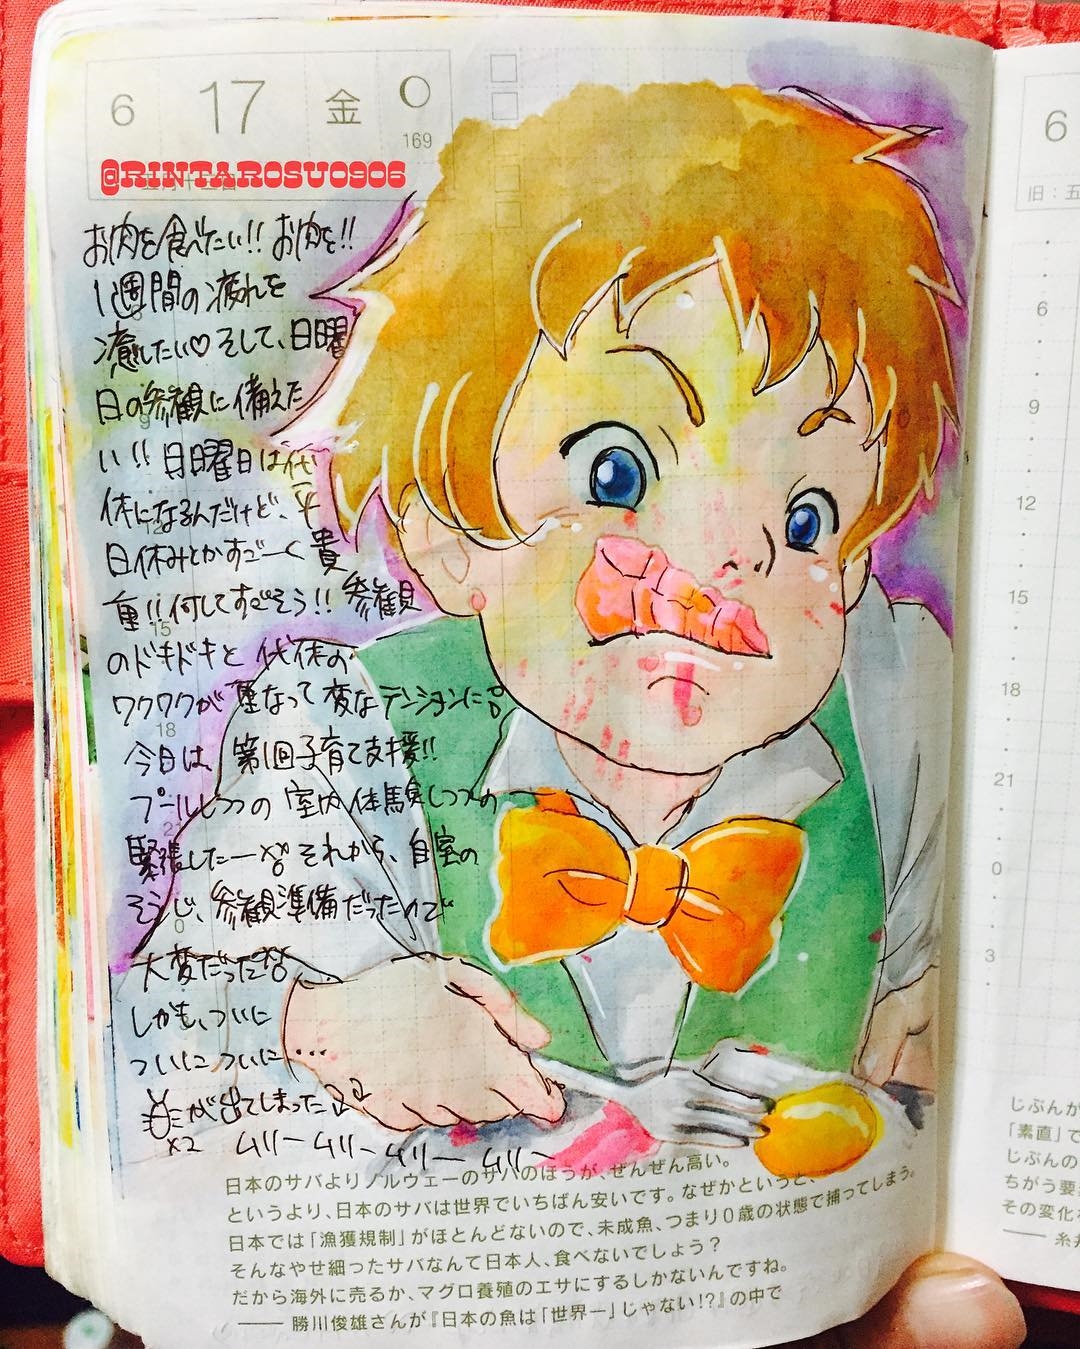 6 17 金
169
@RINTAROSU0906
お肉を食べたい!! お肉を!!
1週間の疲れを
癒したい♡ そして、日曜
日の参観に備えた
い!! 日曜日は代
休になるんだけど、平
日休みとかすご〜く貴
重!! 何してすごそう!! 参観
のドキドキと代休の
ワクワクが重なって変なテンションに
今日は、第1回子育て支援!!
プールしつつの室内体験しつつの
緊張したー それから、自室の
そうじ、参観準備だったので
大変だった
しかも、ついに
ついについに…
が出てしまった
×2 ムリームリームリームリー
日本のサバよりノルウェーのサバのほうが、ぜんぜん高い。
というより、日本のサバは世界でいちばん安いです。なぜかというと、
日本では「漁獲規制」がほとんどないので、未成魚、つまり0歳の状態で捕ってしまう。
そんなやせ細ったサバなんて日本人、食べないでしょう?
だから海外に売るか、マグロ養殖のエサにするしかないんですね。
――勝川俊雄さんが『日本の魚は「世界一」じゃない!?』の中で
9
12
15
18
21
0
6
旧:五
6
9
12
15
18
21
0
3
じぶんが
「素直」で
じぶんの
ちがう要
その変化
――糸井